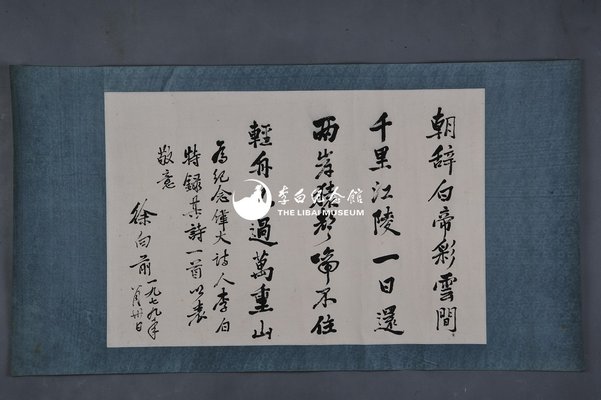 朝辞白帝彩雲間
千里江陵一日還
兩岸猿聲啼不住
輕舟已過萬重山
為紀念偉大詩人李白
特録其詩一首以表
敬意
徐向前 一九七九年
月卅日
李白纪念館
THE LIBAI MUSEUM